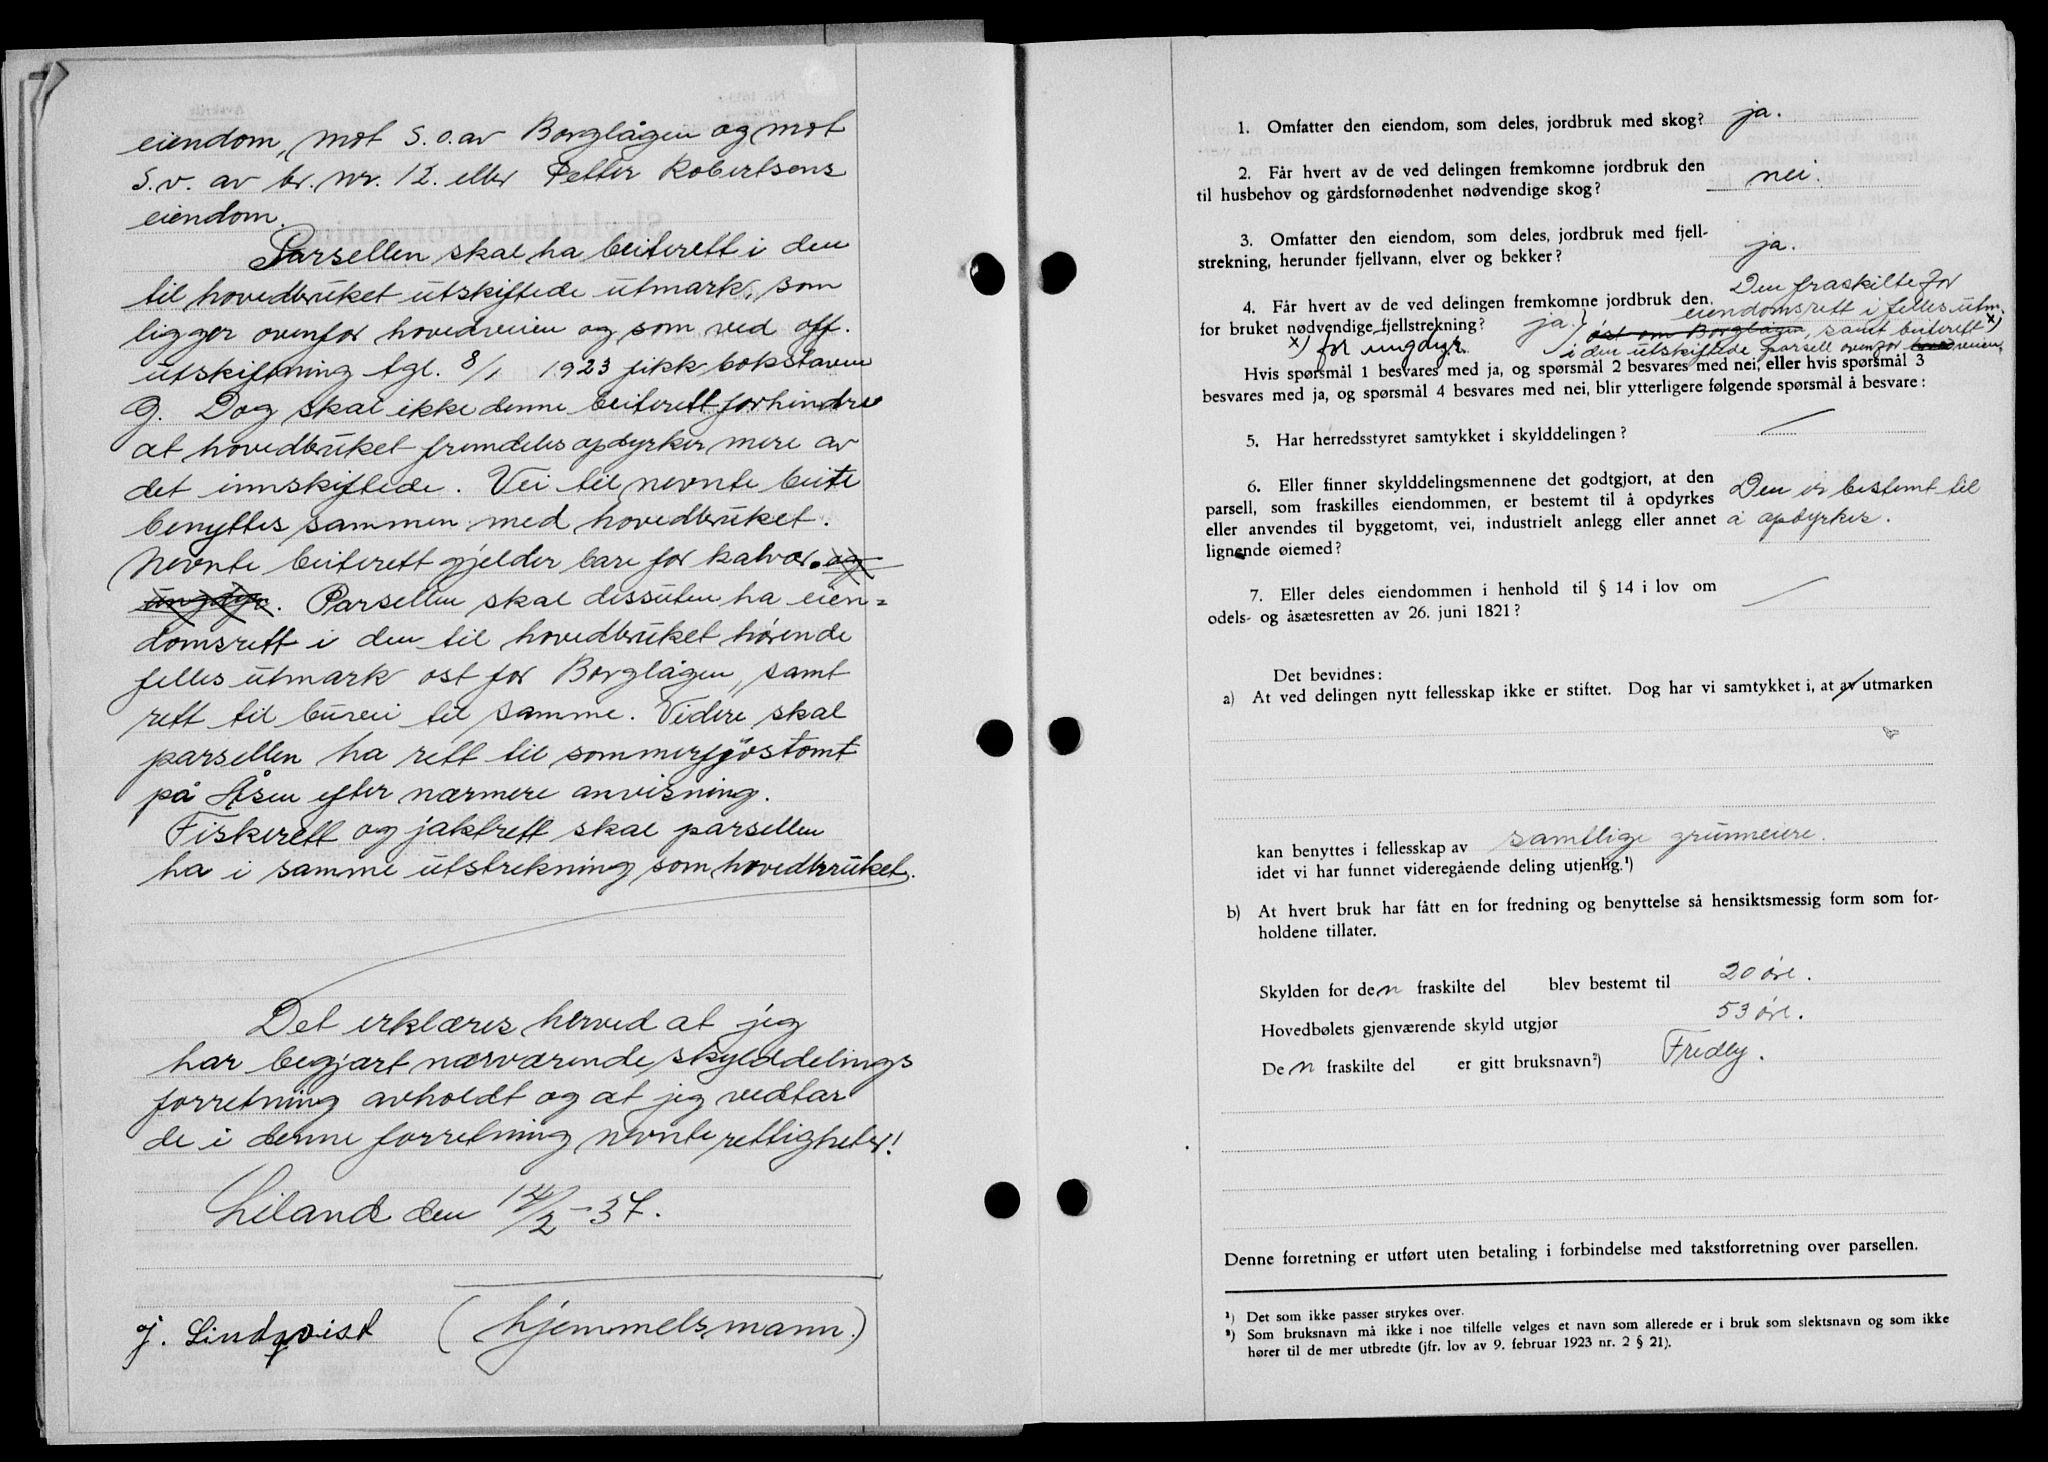 eiendom, mot s.o. av Borglågen og mot
S.v. av br. nr. 12. eller Petter Robertsens
eiendom.
Parsellen skal ha beiterett i den
til hovedbruket utskiftede utmark, som
ligger ovenfor hovedveien og som ved off.
utskiftning tgl. 8/1 1923 fikk bokstaven
G. Dog skal ikke denne beiterett forhindre
at hovedbruket fremdeles opdyrker mere av
det innskiftede. Vei til nevnte beite
benyttes sammen med hovedbruket.
Nevnte beiterett gjelder bare for kalver. og
ungdyr. Parsellen skal dessuten ha eien=
domsrett i den til hovedbruket hørende
felles utmark øst for Borglågen, samt
rett til buvei til samme. Videre skal
parsellen ha rett til sommerfjøstomt
på Åsen efter nærmere anvisning.
Fiskerett og jaktrett skal parsellen
ha i samme utstrekning som hovedbruket.
Det erklæres herved at jeg
har begjært nærværende skylddelings
forretning avholdt og at jeg vedtar
de i denne forretning nevnte rettigheter!
Liland den 12/2 - 37.
J. Lindqvist (hjemmelsmann.)
1. Omfatter den eiendom, som deles, jordbruk med skog? ja.
2. Får hvert av de ved delingen fremkomne jordbruk den
til husbehov og gårdsfornødenhet nødvendige skog? nei.
3. Omfatter den eiendom, som deles, jordbruk med fjell-
strekning, herunder fjellvann, elver og bekker? ja.
4. Får hvert av de ved delingen fremkomne jordbruk den
for bruket nødvendige fjellstrekning? ja.
Den fraskilte for
eiendomsrett i felles utm.
øst om Borglågen, samt beiterett x)
i den utskiftede parsell ovenfor hovedveien
x) for ungdyr.
Hvis spørsmål 1 besvares med ja, og spørsmål 2 besvares med nei, eller hvis spørsmål 3
besvares med ja, og spørsmål 4 besvares med nei, blir ytterligere følgende spørsmål å besvare:
5. Har herredsstyret samtykket i skylddelingen?
6. Eller finner skylddelingsmennene det godtgjort, at den
parsell, som fraskilles eiendommen, er bestemt til å opdyrkes
eller anvendes til byggetomt, vei, industrielt anlegg eller annet
lignende øiemed?
Den er bestemt til
å opdyrkes.
7. Eller deles eiendommen i henhold til § 14 i lov om
odels- og åsætesretten av 26. juni 1821?
Det bevidnes:
a) At ved delingen nytt fellesskap ikke er stiftet. Dog har vi samtykket i, at av utmarken
kan benyttes i fellesskap av samtlige grunneiere.
idet vi har funnet videregående deling utjenlig.¹)
b) At hvert bruk har fått en for fredning og benyttelse så hensiktsmessig form som for-
holdene tillater.
Skylden for den fraskilte del blev bestemt til 20 øre.
Hovedbølets gjenværende skyld utgjør 53 øre.
Den fraskilte del er gitt bruksnavn²) Fredly.
Denne forretning er utført uten betaling i forbindelse med takstforretning over parsellen.
¹) Det som ikke passer strykes over.
²) Som bruksnavn må ikke i noe tilfelle velges et navn som allerede er i bruk som slektsnavn og som ikke
hører til de mer utbredte (jfr. lov av 9. februar 1923 nr. 2 § 21).